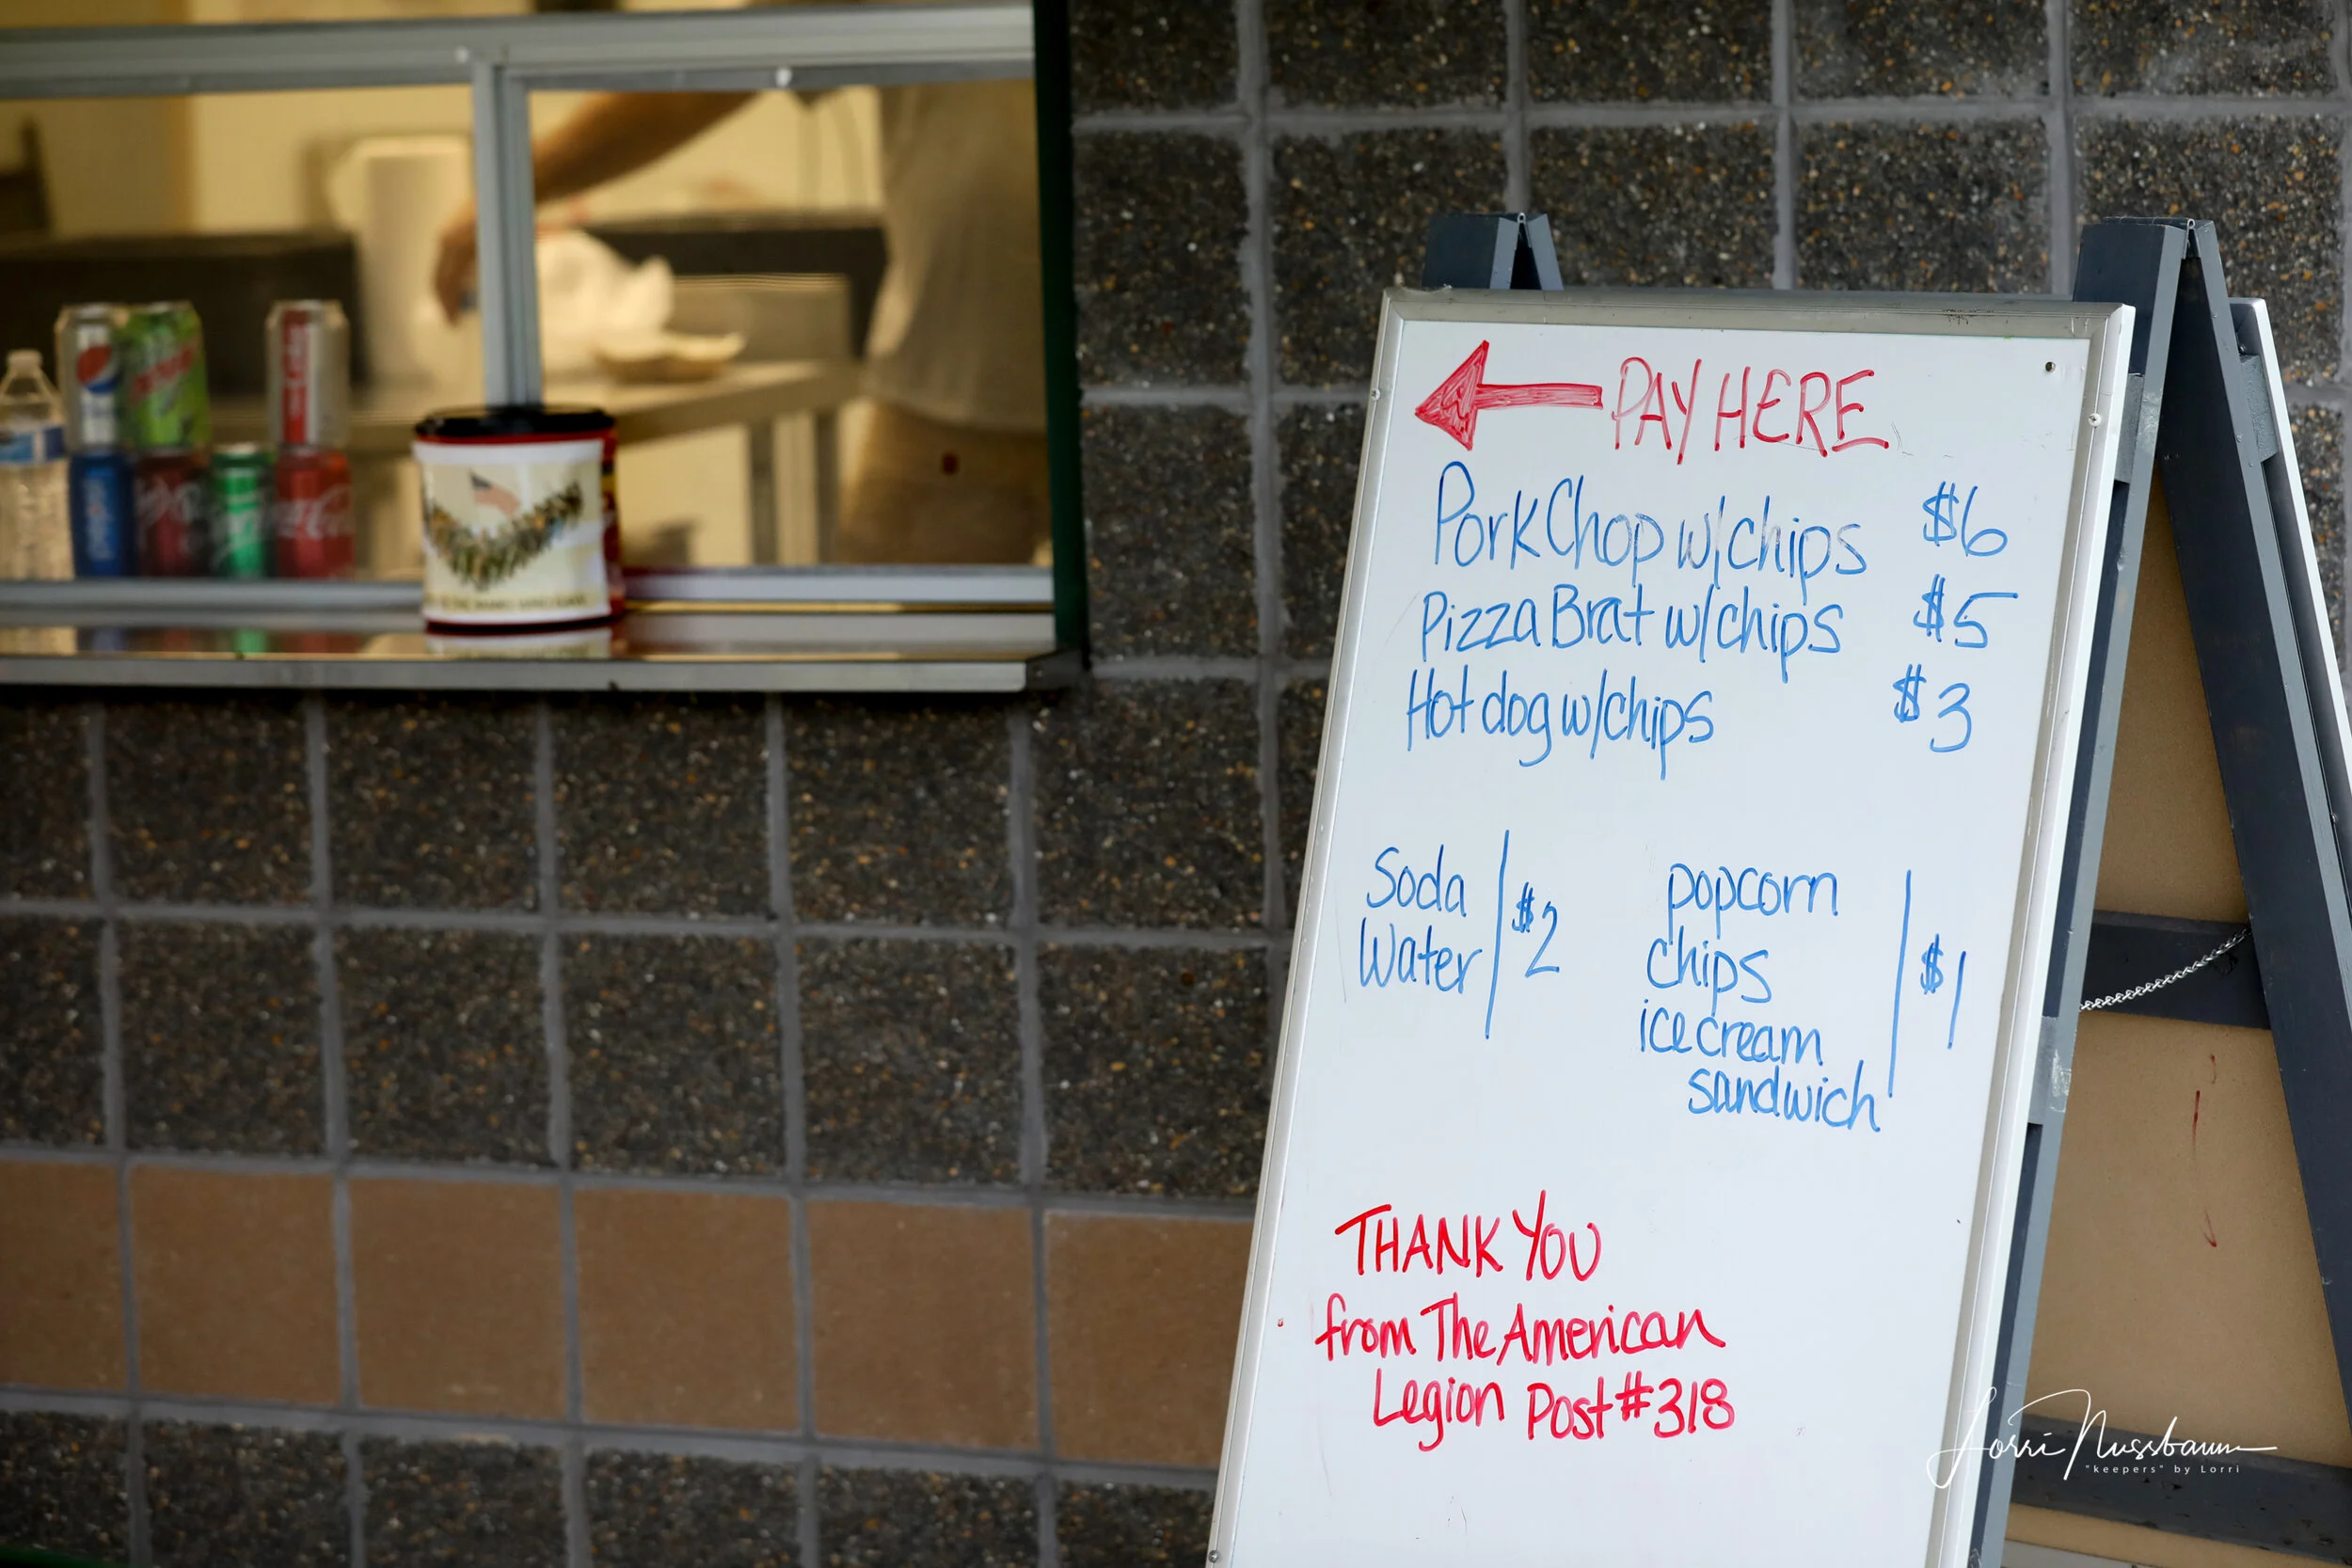 PAY HERE
Pork Chop w/chips $6
Pizza Brat w/chips $5
Hot dog w/chips $3
Soda
Water
$2
popcorn
chips
ice cream
sandwich
$1
THANK YOU
from The American
Legion Post #318
Coca-Cola
Lorri Nussbaum
"keepers" by Lorri